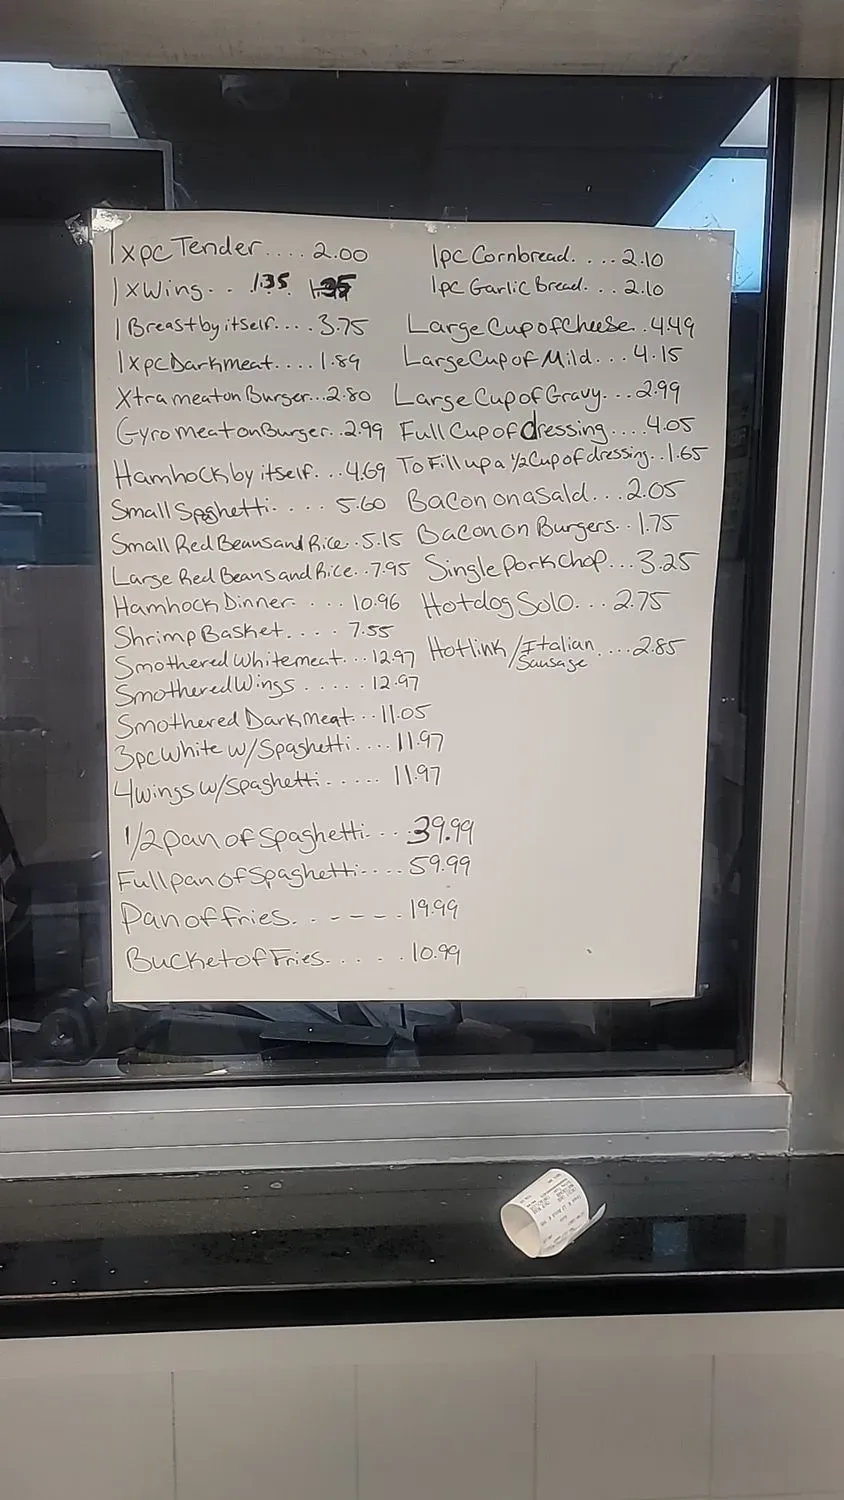 1xpc Tender.... 2.00
1xWing... 1.35
1 Breast by itself.... 3.75
1xpc Dark meat.... 1.89
Xtra meat on Burger...2.80
Gyro meat on Burger..2.99
Hamhock by itself...4.69
Small Spaghetti.... 5.60
Small Red Beans and Rice..5.15
Large Red Beans and Rice..7.95
Hamhock Dinner.... 10.96
Shrimp Basket.... 7.55
Smothered White meat...12.97
Smothered Wings..... 12.97
Smothered Dark meat...11.05
3pc White w/Spaghetti.... 11.97
4wings w/Spaghetti..... 11.97
1/2 pan of Spaghetti... 39.99
Full pan of Spaghetti.... 59.99
Pan of Fries. - - - - . 19.99
Bucket of Fries..... 10.99
1pc Cornbread. ...2.10
1pc Garlic Bread. .. 2.10
Large Cup of Cheese..4.49
Large Cup of Mild... 4.15
Large Cup of Gravy...2.99
Full Cup of dressing....4.05
To Fill up a 1/2 Cup of dressing..1.65
Bacon on a Sald...2.05
Bacon on Burgers..1.75
Single Pork Chop...3.25
Hotdog Solo... 2.75
Hotlink/Italian ....2.85
Sausage